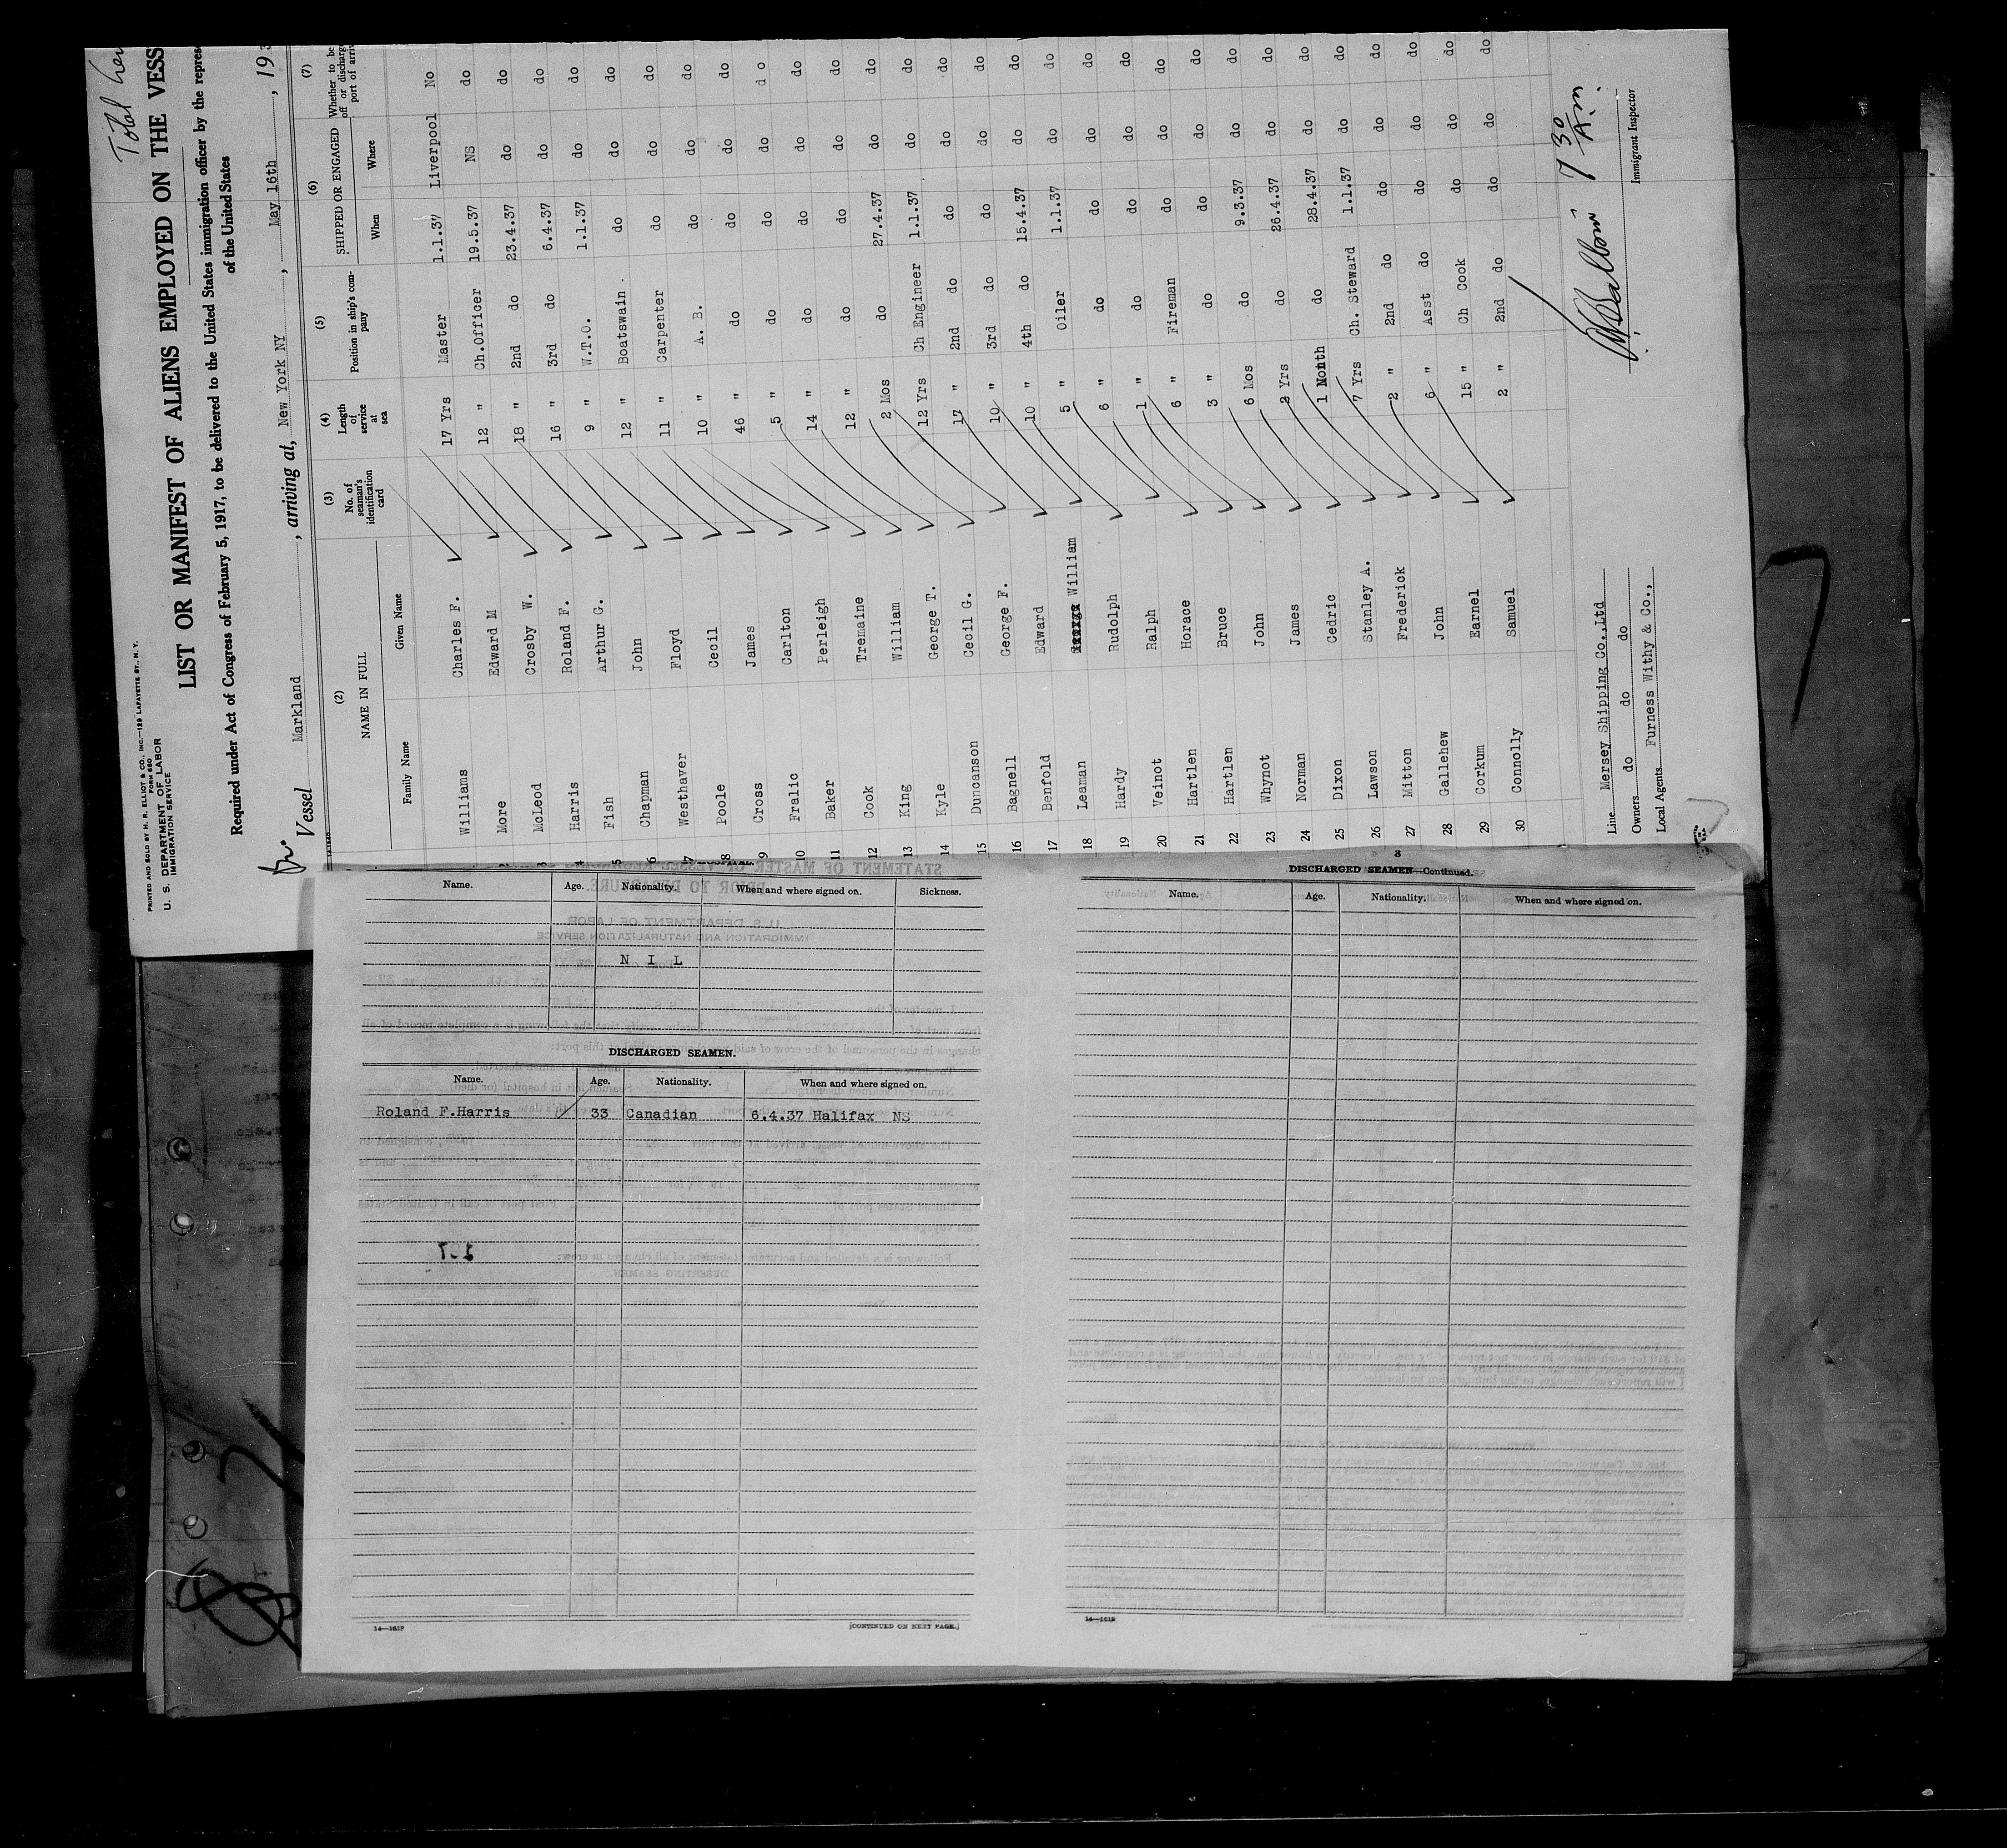 Total
PRINTED AND SOLD BY H. R. ELLIOT & CO., INC.—129 LAFAYETTE ST., N. Y.
FORM 680
U. S. DEPARTMENT OF LABOR
IMMIGRATION SERVICE
LIST OR MANIFEST OF ALIENS EMPLOYED ON THE VESS
Required under Act of Congress of February 5, 1917, to be delivered to the United States immigration officer by the repres
of the United States
Vessel Markland , arriving at, New York NY , May 16th , 193
(2) (3) (4) (5) (6) (7)
NAME IN FULL No. of seaman's identification card Length of service at sea Position in ship's company SHIPPED OR ENGAGED Whether to be off or discharg port of arriv
Family Name Given Name When Where
Williams Charles F. 17 Yrs Master 1.1.37 Liverpool No
More Edward M 12 " Ch.Officer 19.5.37 NS do
3 McLeod Crosby W. 18 " 2nd do 23.4.37 do do
4 Harris Roland F. 16 " 3rd do 6.4.37 do do
5 Fish Arthur G. 9 " W.T.O. 1.1.37 do do
6 Chapman John 12 " Boatswain do do do
7 Westhaver Floyd 11 " Carpenter do do do
8 Poole Cecil 10 " A. B. do do do
9 Cross James 46 " do do do do
10 Fralic Carlton 5 " do do do d o
11 Baker Perleigh 14 " do do do do
12 Cook Tremaine 12 " do do do do
13 King William 2 Mos do 27.4.37 do do
14 Kyle George T. 12 Yrs Ch Engineer 1.1.37 do do
15 Duncanson Cecil G. 17 " 2nd do do do do
16 Bagnell George F. 10 " 3rd do do do do
17 Benfold Edward 10 " 4th do 15.4.37 do do
18 Leaman William 5 " Oiler 1.1.37 do do
19 Hardy Rudolph 6 " do do do do
20 Veinot Ralph 1 " do do do do
21 Hartlen Horace 6 " Fireman do do do
22 Hartlen Bruce 3 " do do do do
23 Whynot John 6 Mos do 9.3.37 do do
24 Norman James 2 Yrs do 26.4.37 do do
25 Dixon Cedric 1 Month do 28.4.37 do do
26 Lawson Stanley A. 7 Yrs Ch. Steward 1.1.37 do do
27 Mitton Frederick 2 " 2nd do do do do
28 Gallehew John 6 " Asst do do do do
29 Corkum Earnel 15 " Ch Cook do do do
30 Connolly Samuel 2 " 2nd do do do do
Line Mersey Shipping Co.,Ltd
Owners do do do
Local Agents Furness Withy & Co.,
7 30 A.m.
Immigrant Inspector
Name. Age. Nationality. When and where signed on. Sickness.
N I L
DISCHARGED SEAMEN.
Name. Age. Nationality. When and where signed on.
Roland F.Harris 33 Canadian 6.4.37 Halifax NS
14—1619
[CONTINUED ON NEXT PAGE.]
3
DISCHARGED SEAMEN—Continued.
Name. Age. Nationality. When and where signed on.
14—1619